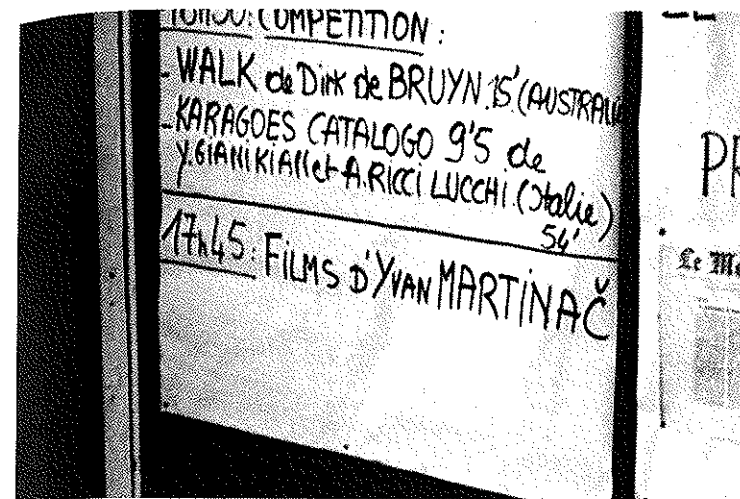 COMPETITION :
- WALK de Dirk de BRUYN 15' (AUSTRALIE
- KARAGOES CATALOGO 9'5 de
Y. GIANIKIAN et A. RICCI LUCCHI (Italie)
54'
17h45 : FILMS D'YVAN MARTINAČ
PR
Le Mo